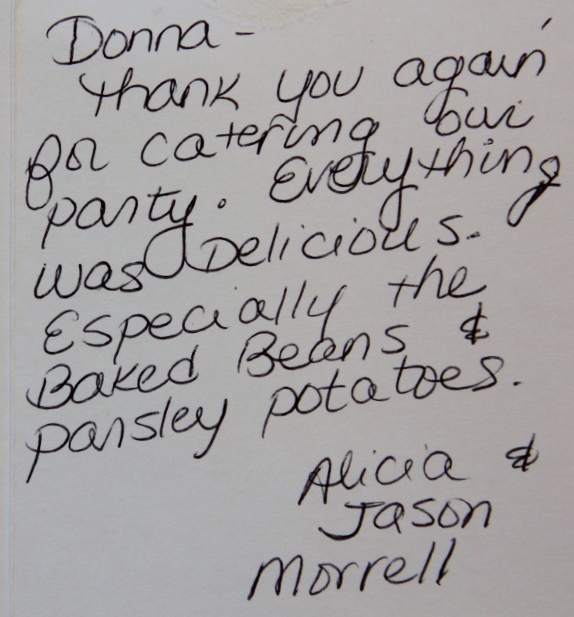 Donna -
Thank you again
for catering our
party. Everything
was Delicious.
Especially the
Baked Beans &
parsley potatoes.
Alicia &
Jason
Morrell